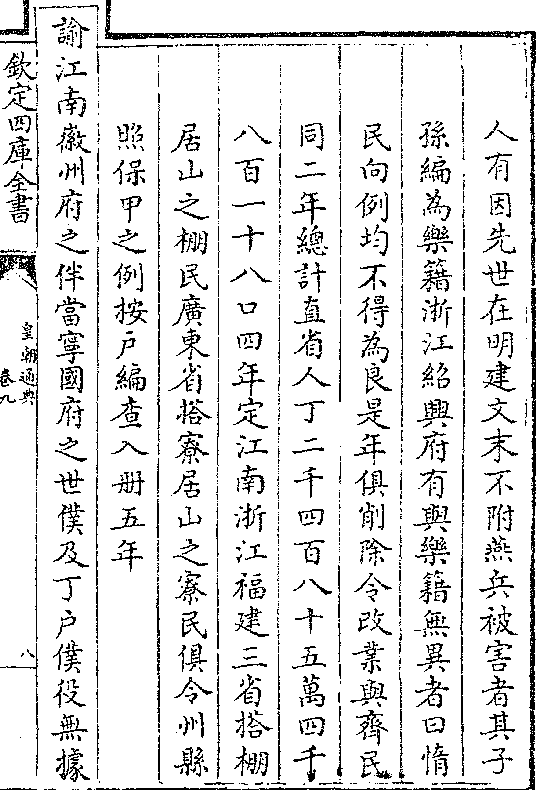 人有因先世在明建文末不附燕兵被害者其子
孫編為樂籍浙江紹興府有與樂籍無異者曰惰
民向例均不得為良是年俱削除令改業與齊民
同二年總計直省人丁二千四百八十五萬四千
八百一十八口四年定江南浙江福建三省搭棚
居山之棚民廣東省搭寮居山之寮民俱令州縣
照保甲之例按户編查入册五年
諭江南徽州府之伴當寧國府之世僕及丁户僕役無據
欽定四庫全書
皇朝通典
卷九
八